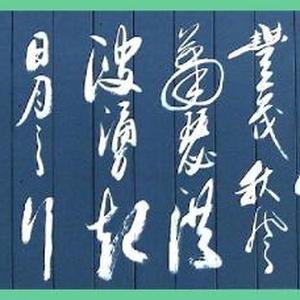 豐茂秋風
蕭瑟洪
波湧起
日月之行